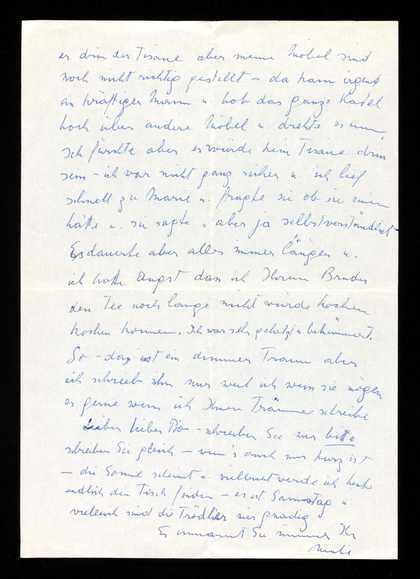 es drin der Tisane aber meine Möbel sind
noch nicht richtig gestellt – da kam irgend
ein kräftiger Mann u hob das ganze
hoch über andere Möbel u drehte es um,
ich fürchte aber es würde kein Tisane drin
sein – ich war nicht ganz sicher u ich lief
schnell zu Marie u. fragte sie ob sie einen
hätte u. sie sagte " aber ja selbstverständlich –
Es dauerte aber alles immer länger u.
ich hatte Angst dass ich Ihrem Bruder
den Tee noch lange nicht würde kochen
kochen können. Ich war sehr u bekümmert.
So – das ist ein dummer Traum aber
ich schreib ihn nur weil ich weiss sie mögen
es gerne wenn ich Ihnen Träume schreibe
Lieber lieber – schreiben Sie mir bitte
schreiben Sie gleich – wenn's auch nur kurz ist
– die Sonne scheint u vielleicht werde ich heute
endlich den Tisch finden – es ist Samstag u
vielleicht sind die Trödler mir gnädig
Es umarmt Sie immer Ihr